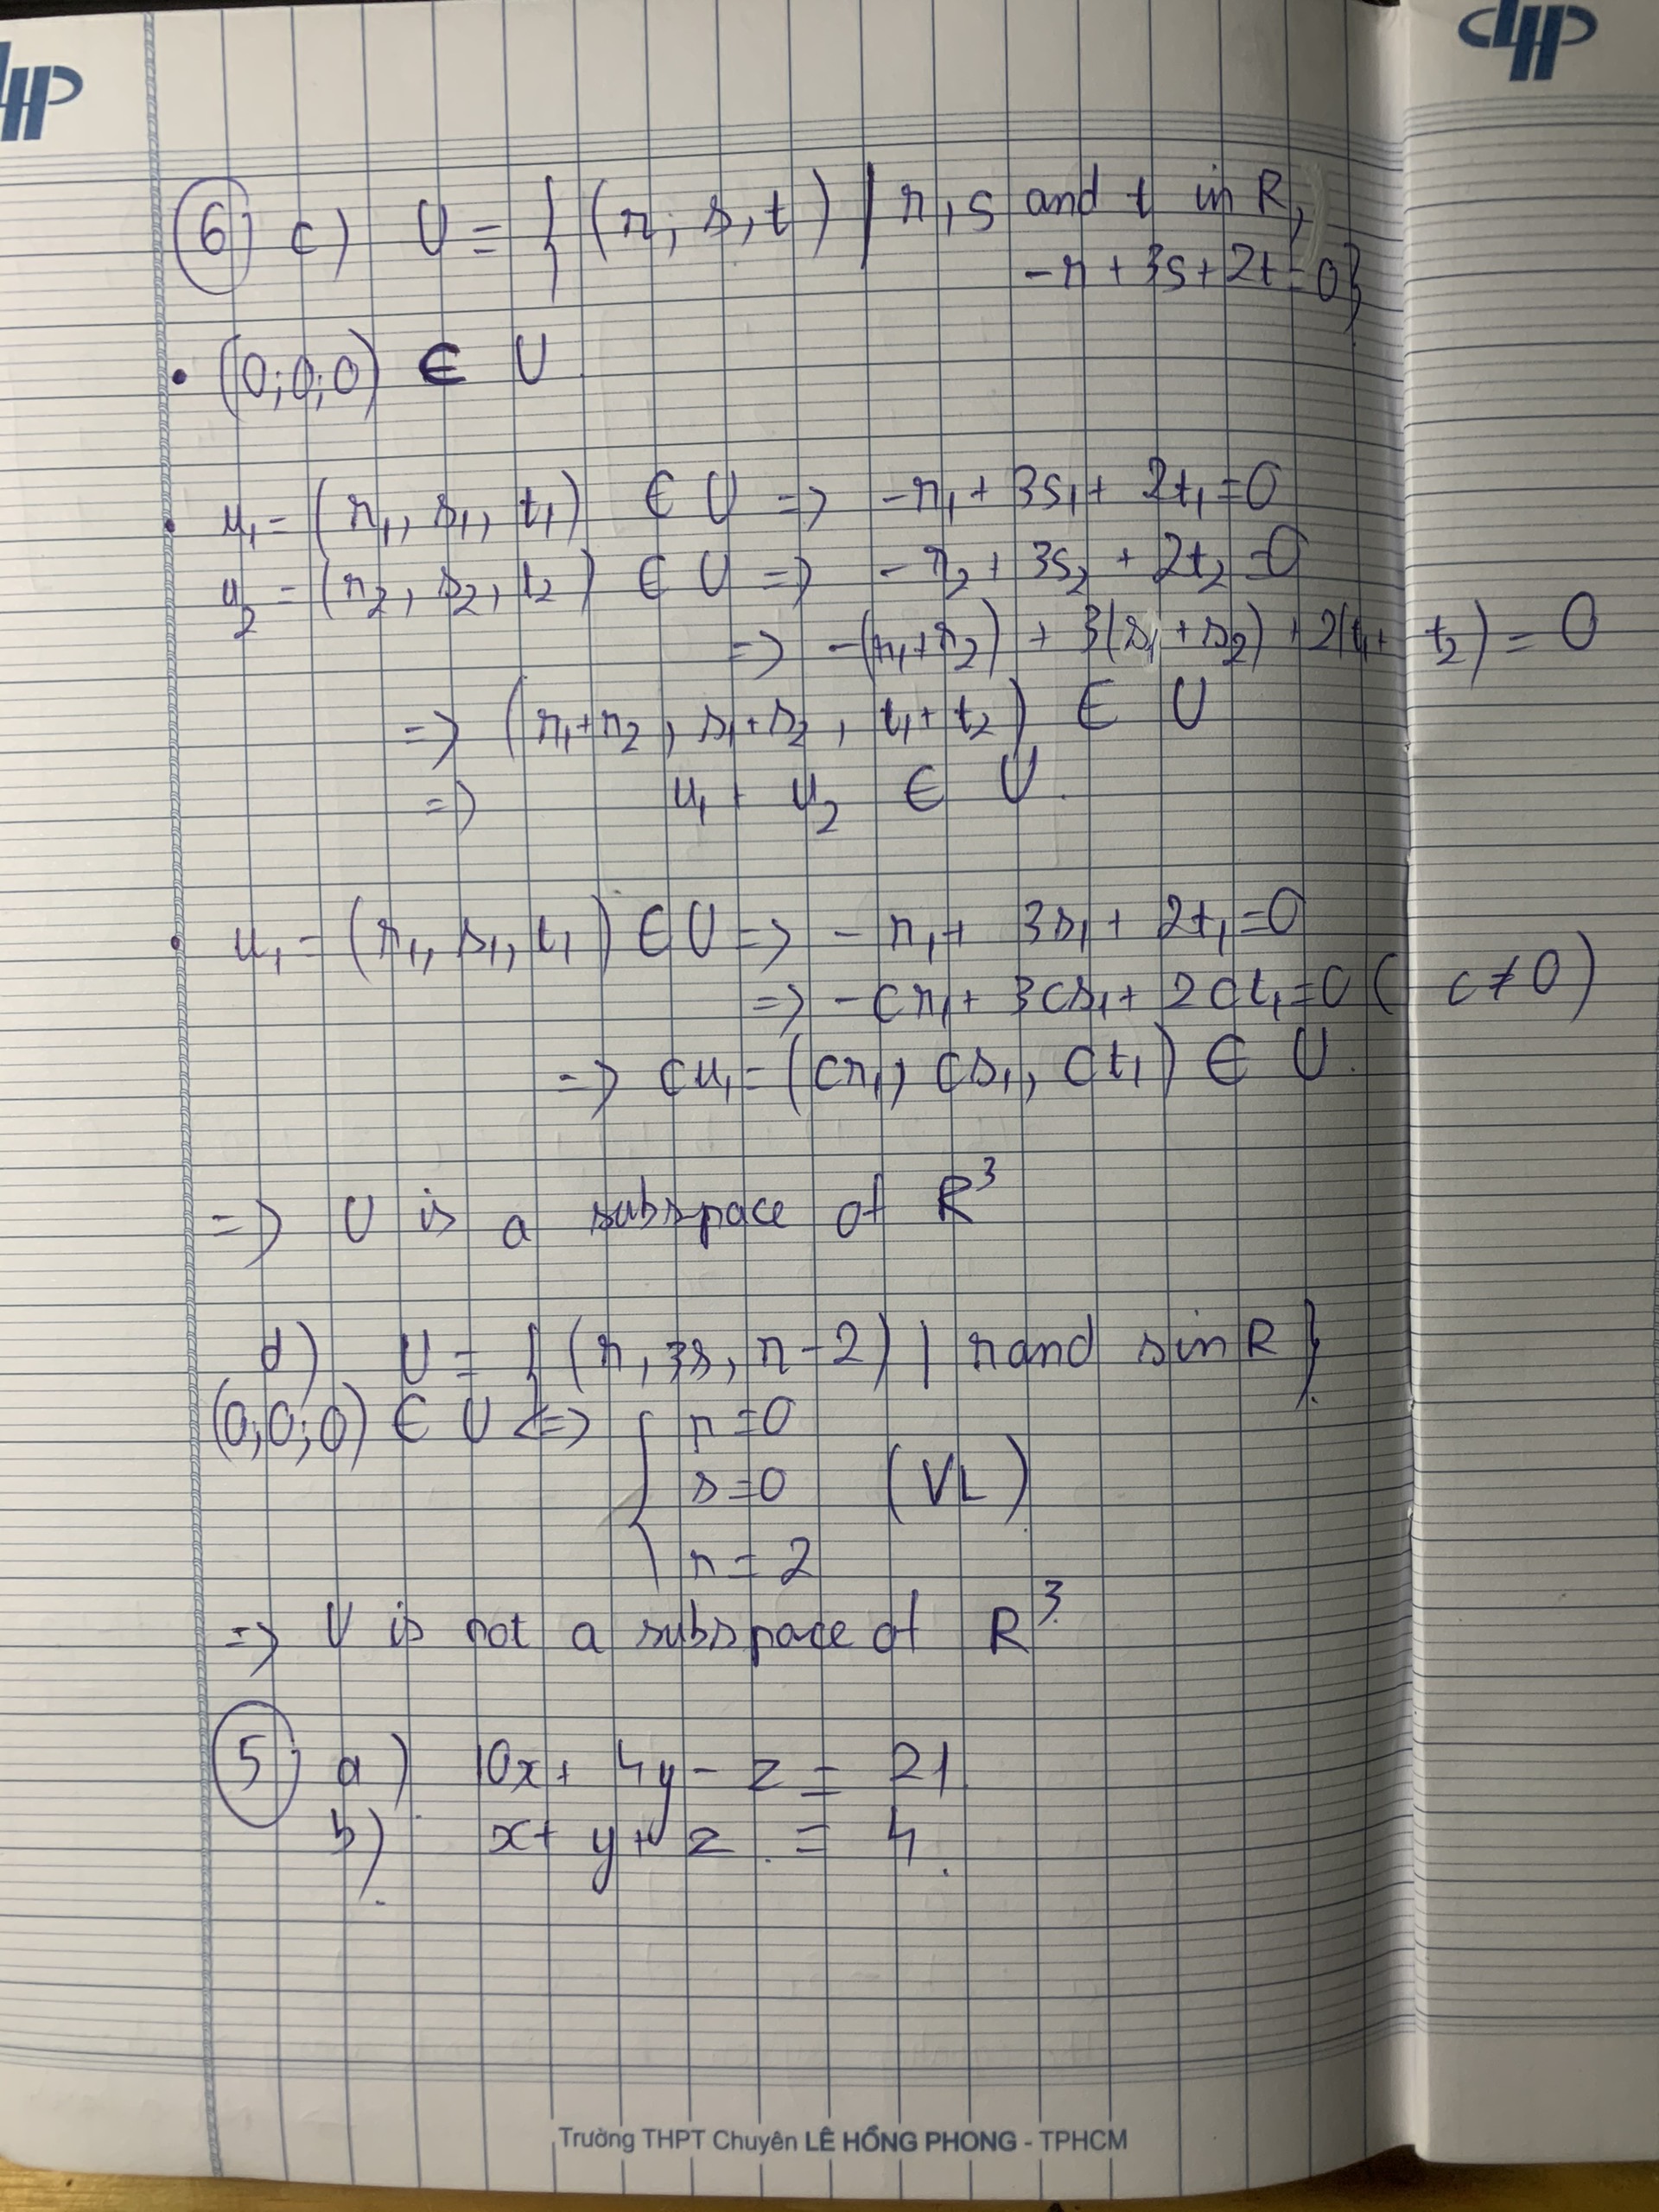 CHP
LHP
6) c) U = { (r; s, t) | r, s and t in R,
-r + 3s + 2t = 0}
• (0; 0; 0) ∈ U
• u₁ = (r₁, s₁, t₁) ∈ U => -r₁ + 3s₁ + 2t₁ = 0
u₂ = (r₂, s₂, t₂) ∈ U => -r₂ + 3s₂ + 2t₂ = 0
=> -(r₁+r₂) + 3(s₁+s₂) + 2(t₁+t₂) = 0
=> (r₁+r₂, s₁+s₂, t₁+t₂) ∈ U
=> u₁ + u₂ ∈ U.
• u₁ = (r₁, s₁, t₁) ∈ U => -r₁ + 3s₁ + 2t₁ = 0
=> -cr₁ + 3cs₁ + 2ct₁ = 0 (c ≠ 0)
=> cu₁ = (cr₁, cs₁, ct₁) ∈ U.
=> U is a subspace of R³
d) U = { (r, 3s, r-2) | r and s in R }
(0; 0; 0) ∈ U <=> { r = 0
s = 0 (VL)
r = 2
=> U is not a subspace of R³
5) a) 10x + 4y - z = 21
b) x + y + z = 4.
Trường THPT Chuyên LÊ HỒNG PHONG - TPHCM